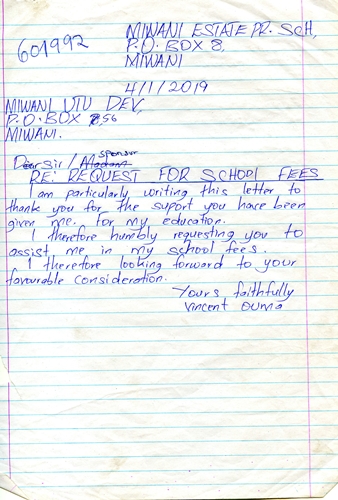 MIWANI ESTATE PR. SCH,
601992
P.O. BOX 8,
MIWANI
4/1/2019
MIWANI UTU DEV,
P.O. BOX 256
MIWANI.
Dear Sir / Madam sponsor
RE: REQUEST FOR SCHOOL FEES
I am particularly writing this letter to
thank you for the suport you have been
given me. for my education.
I therefore humbly requesting you to
assist me in my school fees.
I therefore looking forward to your
favourable consideration.
Yours faithfully
Vincent Ouma